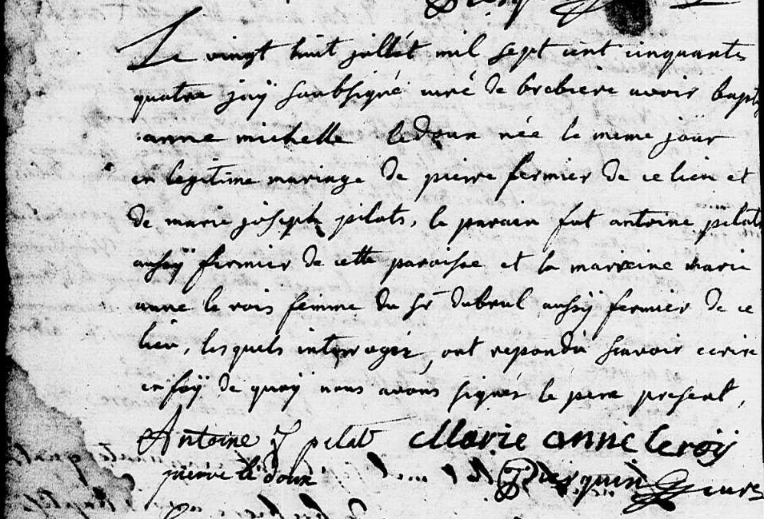 Le vingt huit jullêt mil sept cent cinquante
quatre jay soubsigné curé de brebiere avoir baptis
anne michelle ledoux née le meme jour
en legitime mariage de pierre fermier de ce lieu et
de marie joseph pilats, le parain fut antoine pilat
aussy fermier de cette paroisse et la marreine marie
anne le rois femme du Sr dubrul aussy fermier de ce
lieu, lesquels interrogez, ont repondu scavoir ecrire
en foÿ de quoy nous avons signés le pere present,
Antoine pilat Marie anne leroÿ
pierre le doux Desquin curé